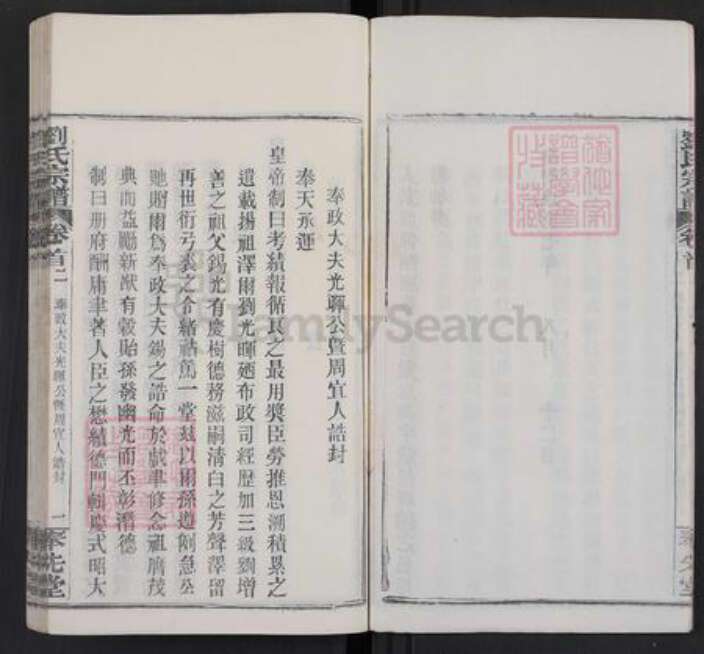 劉氏宗譜
卷首
奉先堂
譜學會
收藏
FamilySearch
奉政大夫光暉公暨周宜人誥封
奉天承運
皇帝制曰考績報循良之最用獎臣勞推恩溯積累之
遺載揚祖澤爾劉光暉廼布政司經歷加三級劉增
善之祖父錫光有慶樹德務滋嗣清白之芳聲澤留
再世衍弓裘之令緒祜篤一堂茲以爾孫遵例急公
貤贈爾為奉政大夫錫之誥命於戲聿修念祖膺茂
典而益勵新猷有穀貽孫發幽光而丕彰潛德
制曰册府酬庸聿著人臣之懋績德門輯慶式昭大
劉氏宗譜
卷首二
奉政大夫光暉公暨周宜人誥封
一
奉先堂